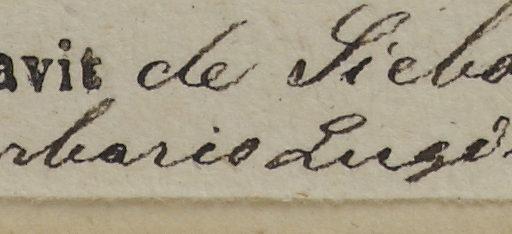 avit de Siebo
rbario Lugd